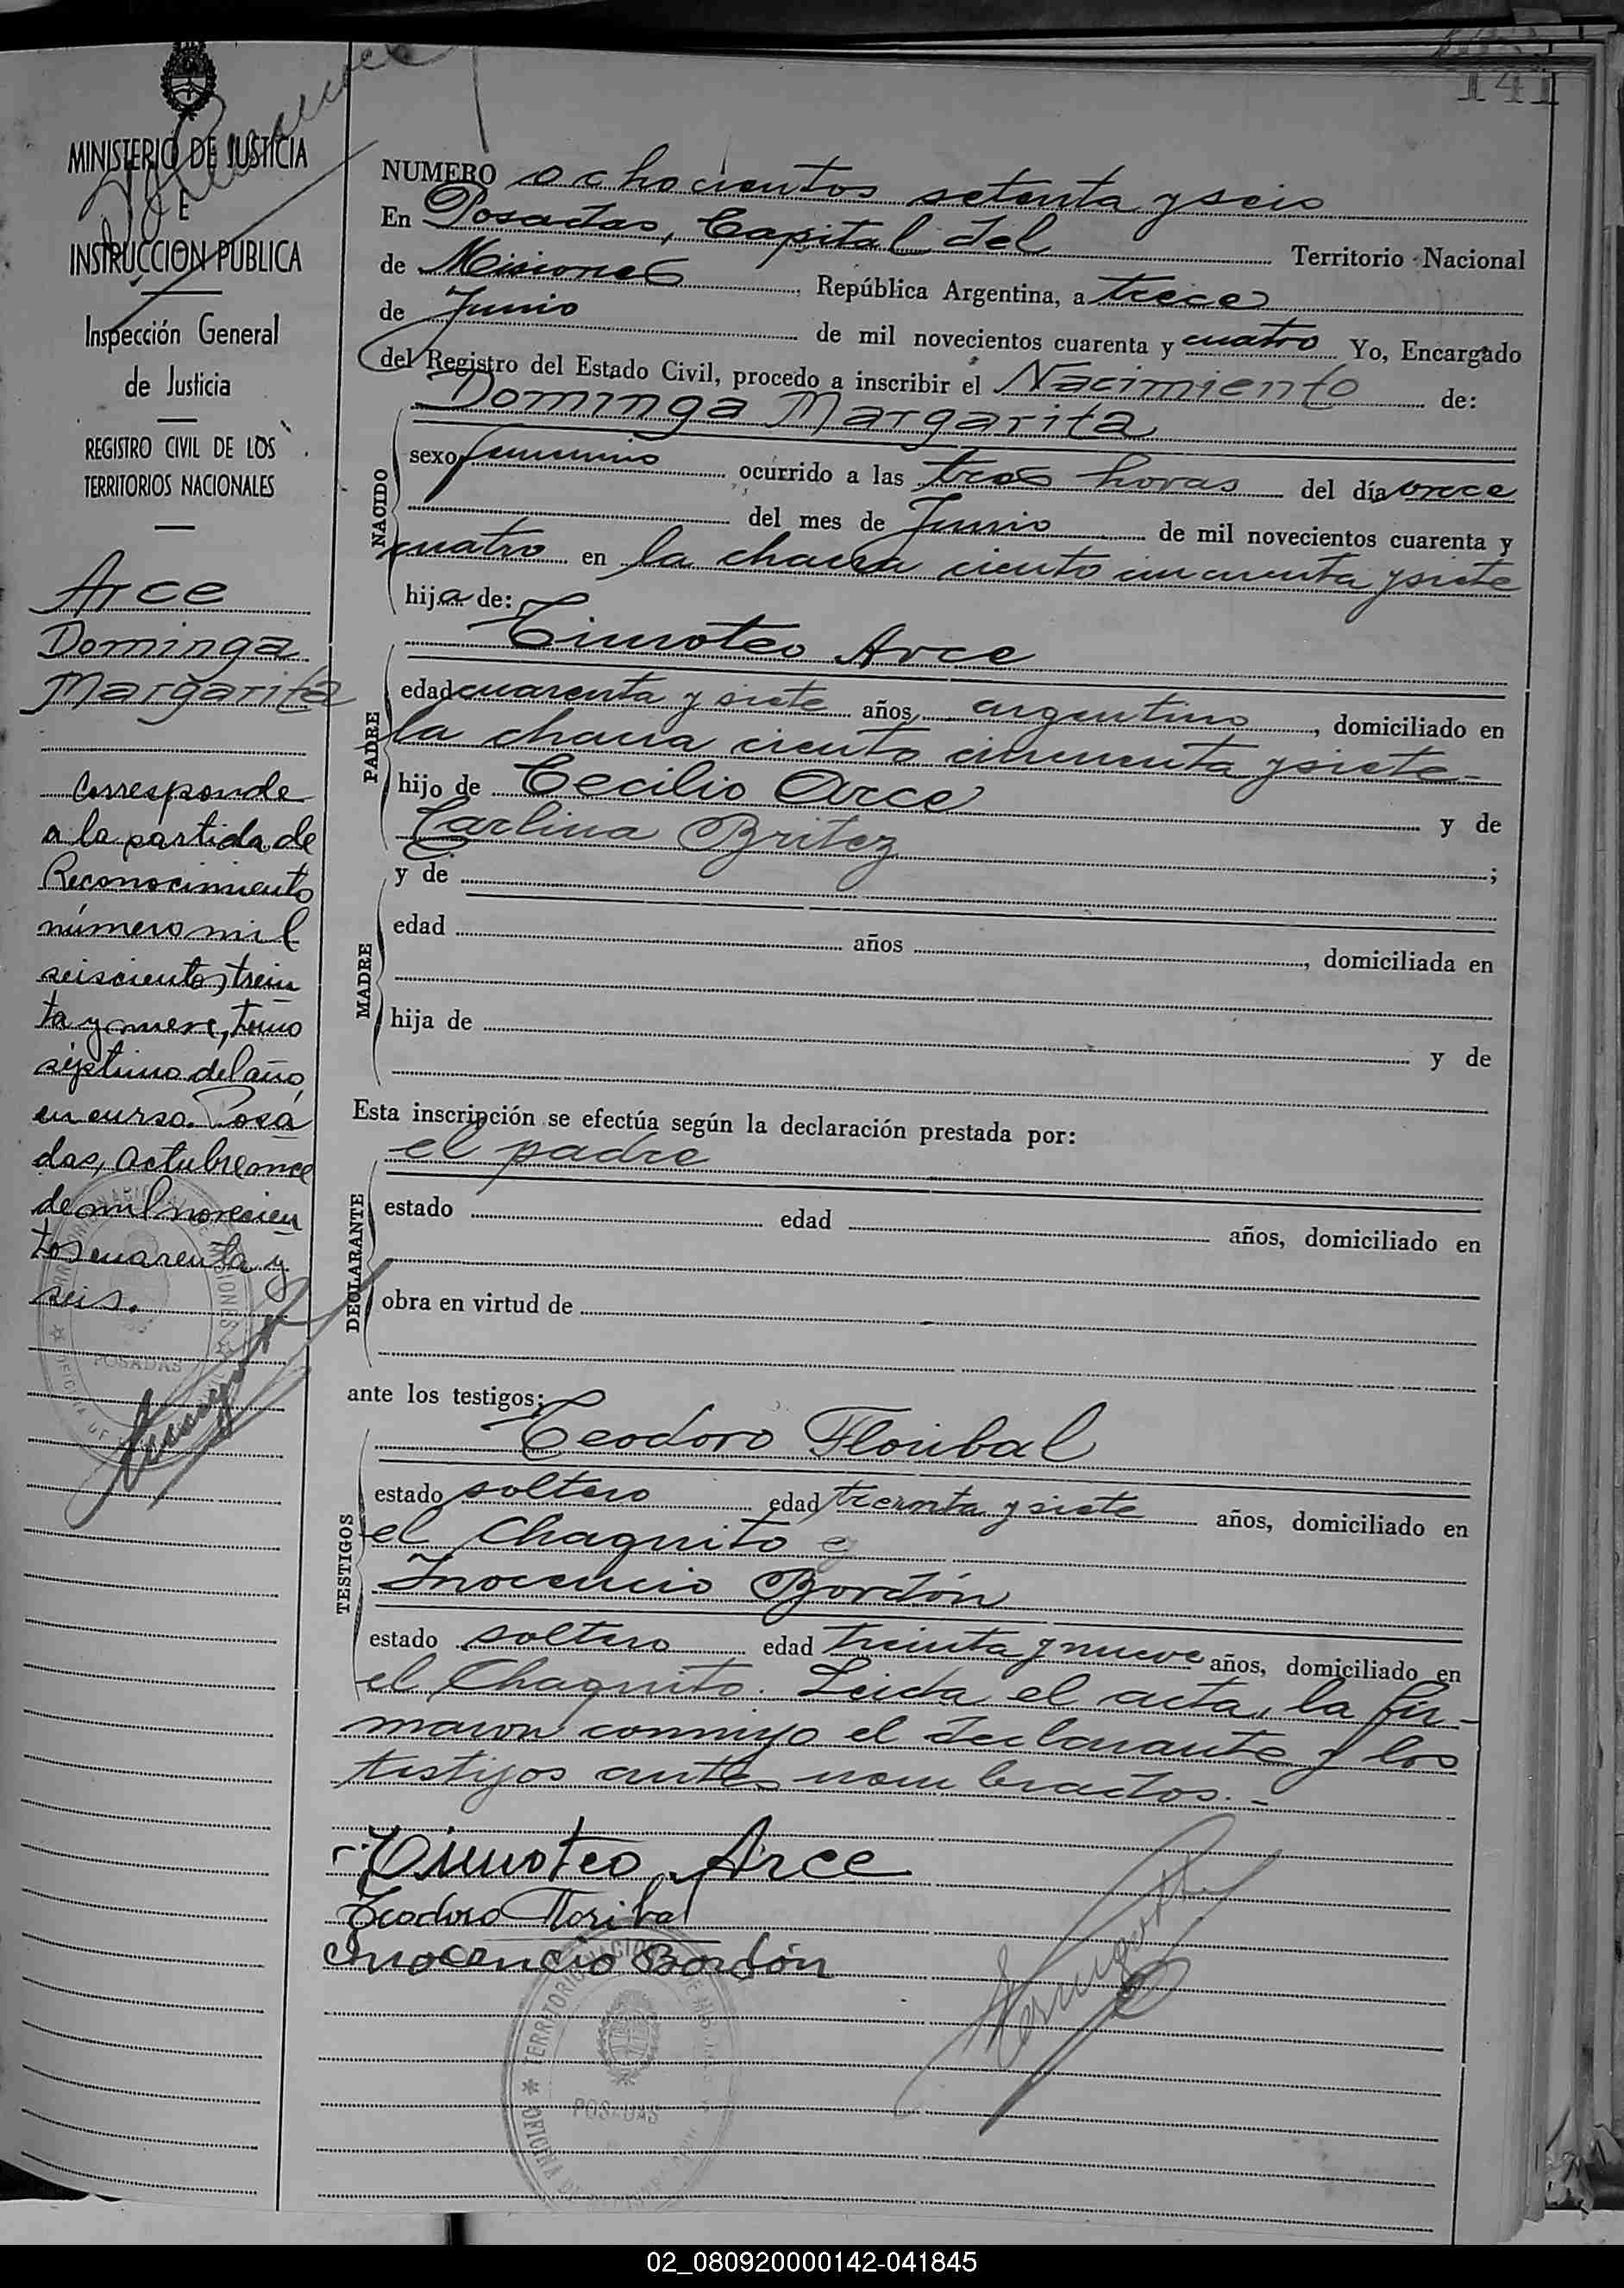 141
MINISTERIO DE JUSTICIA
E
INSTRUCCION PUBLICA
Inspección General
de Justicia
REGISTRO CIVIL DE LOS
TERRITORIOS NACIONALES
Arce
Dominga
Margarita
Corresponde
a la partida de
Reconocimiento
número mil
seiscientos trein
ta y nueve, tomo
séptimo del año
en curso. Posa
das, Octubre once
de mil novecien
tos cuarenta y
seis.
POSADAS
NUMERO ochocientos setenta y seis
En Posadas, Capital del Territorio Nacional
de Misiones, República Argentina, a trece
de Junio de mil novecientos cuarenta y cuatro Yo, Encargado
del Registro del Estado Civil, procedo a inscribir el Nacimiento de:
Dominga Margarita
NACIDO
sexo femenino ocurrido a las tres horas del día once
del mes de Junio de mil novecientos cuarenta y
cuatro en la chacra ciento cincuenta y siete
hija de:
Timoteo Arce
PADRE
edad cuarenta y siete años, argentino, domiciliado en
la chacra ciento cincuenta y siete-
hijo de Cecilio Arce y de
Carlina Britez
y de ;
MADRE
edad años , domiciliada en
hija de y de
Esta inscripción se efectúa según la declaración prestada por:
el padre
DECLARANTE
estado edad años, domiciliado en
obra en virtud de
ante los testigos:
Teodoro Floribal
TESTIGOS
estado soltero edad treinta y siete años, domiciliado en
el Chaquito y
Inocencio Bordón
estado soltero edad treinta y nueve años, domiciliado en
el Chaquito. Leida el acta, la fir-
maron conmigo el declarante y los
testigos antes nombrados.-
Timoteo Arce
Teodoro Floribal
Inocencio Bordón
POSADAS
02_080920000142-041845